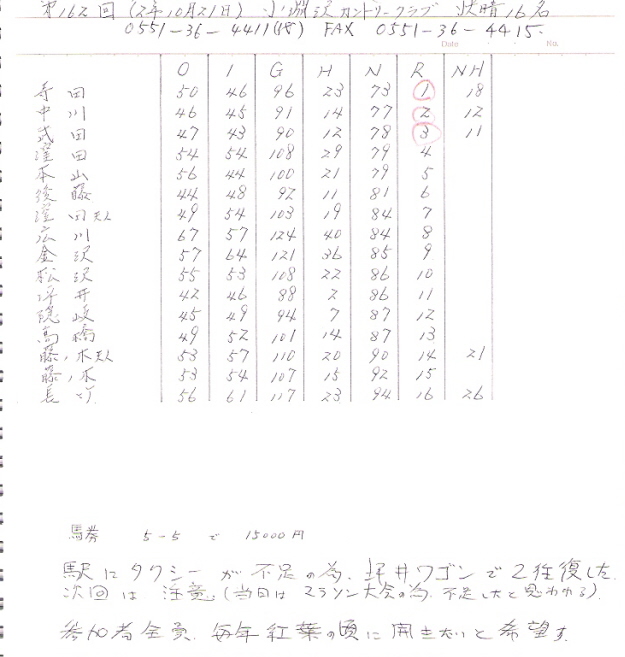 第162回 (2年10月21日) 小淵沢カントリークラブ 快晴16名
0551-36-4411(代) FAX 0551-36-4415.
Date No.
O I G H N R NH
寺田 50 46 96 23 73 1 18
中川 46 45 91 14 77 2 12
武田 47 43 90 12 78 3 11
窪田 54 54 108 29 79 4
本山 56 44 100 21 79 5
後藤 44 48 92 11 81 6
窪田夫人 49 54 103 19 84 7
広川 67 57 124 40 84 8
金沢 57 64 121 36 85 9
松沢 55 53 108 22 86 10
坪井 42 46 88 2 86 11
隠岐 45 49 94 7 87 12
高橋 49 52 101 14 87 13
藤ノ木夫人 53 57 110 20 90 14 21
藤ノ木 53 54 107 15 92 15
長 56 61 117 23 94 16 26
馬券 5-5 で 15000円
駅にタクシーが不足の為、坪井ワゴンで2往復した
次回は注意(当日はマラソン大会の為、不足したと思われる)
参加者全員、毎年紅葉の頃に開きたいと希望す.